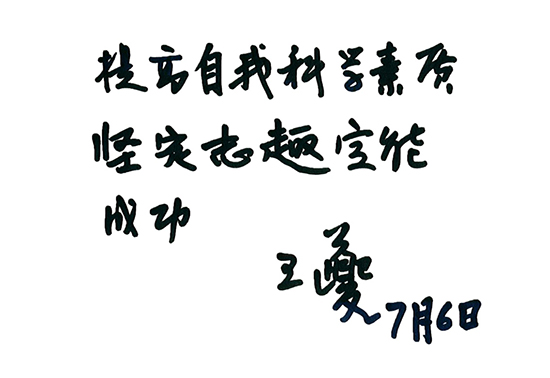 提高自我科学素质
坚定志趣定能
成功
王夔
7月6日